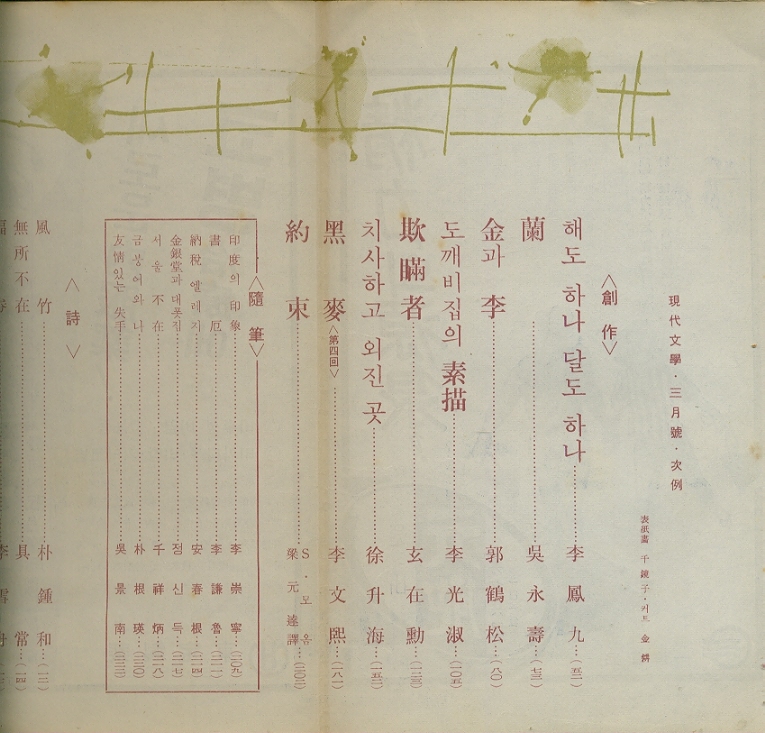 現代文學·三月號·次例
表紙畵 千鏡子·카트 金 熲
<創作>
해도 하나 달도 하나……李鳳九…(五二)
蘭……吳永壽…(七三)
金과 李……郭鶴松…(八〇)
도깨비집의 素描……李光淑…(一〇五)
欺瞞者……玄在勳…(一二三)
치사하고 외진 곳……徐升海…(一五三)
黑麥<第四回>……李文熙…(一八一)
約束……S·모옴 梁元達譯…(二〇二)
<隨筆>
印度의 印象……李崇寧…(二〇九)
書厄……李謙魯…(二一一)
納稅 엘레지……安春根…(二一四)
金銀堂과 대폿집……정신득…(二一七)
서울 不在……千祥炳…(二一八)
금붕어와 나……朴根瑛…(二二〇)
友情있는 失手……吳景南…(二二二)
<詩>
風竹……朴鍾和…(一二)
無所不在……具常…(一四)